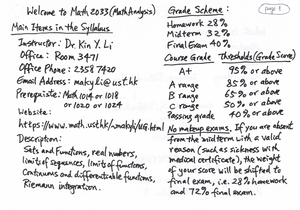 Welcome to Math 2033 (Math Analysis)
Main Items in the Syllabus
Instructor: Dr. Kin Y. Li
Office: Room 3471
Office Phone: 2358 7420
Email Address: makyli@ust.hk
Prerequisite: Math 1014 or 1018
or 1020 or 1024
Website:
https://www.math.ust.hk/~makyli/UG.html
Description:
Sets and Functions, real numbers,
limits of sequences, limits of functions,
Continuous and differentiable functions,
Riemann integration.
Grade Scheme:
page 1
Homework 28%
Midterm 32%
Final Exam 40%
Course Grade Thresholds (Grade Score)
A+ 95% or above
A range 85% or above
B range 65% or above
C range 50% or above
Passing grade 40% or above
No makeup exams. If you are absent
from the midterm with a valid
reason (such as sickness with
medical certificate), the weight
of your score will be shifted to
final exam, i.e. 28% homework
and 72% final exam.